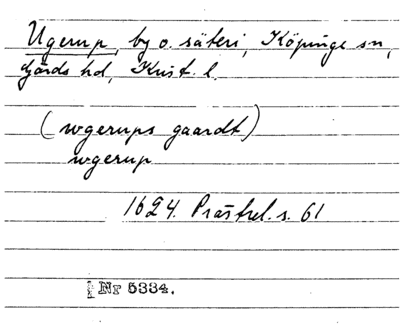 Ugerup, by o. säteri, Köpinge sn,
Gärds hd, Krist. l.
(wgerups gaardt)
wgerup
1624. Prästrel. s. 61
Nr 5334.